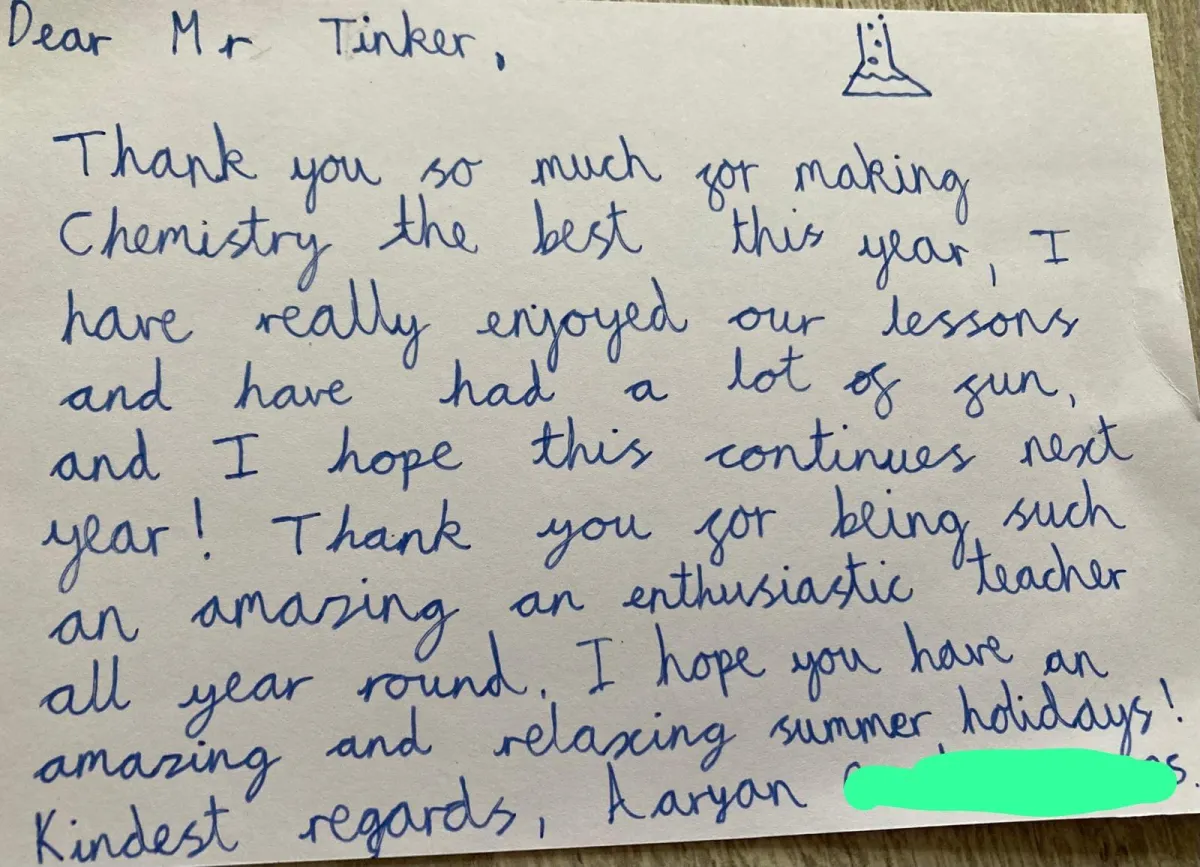 Dear Mr Tinker,
Thank you so much for making
Chemistry the best this year, I
have really enjoyed our lessons
and have had a lot of fun,
and I hope this continues next
year! Thank you for being such
an amazing an enthusiastic teacher
all year round. I hope you have an
amazing and relaxing summer holidays!
Kindest regards, Aaryan